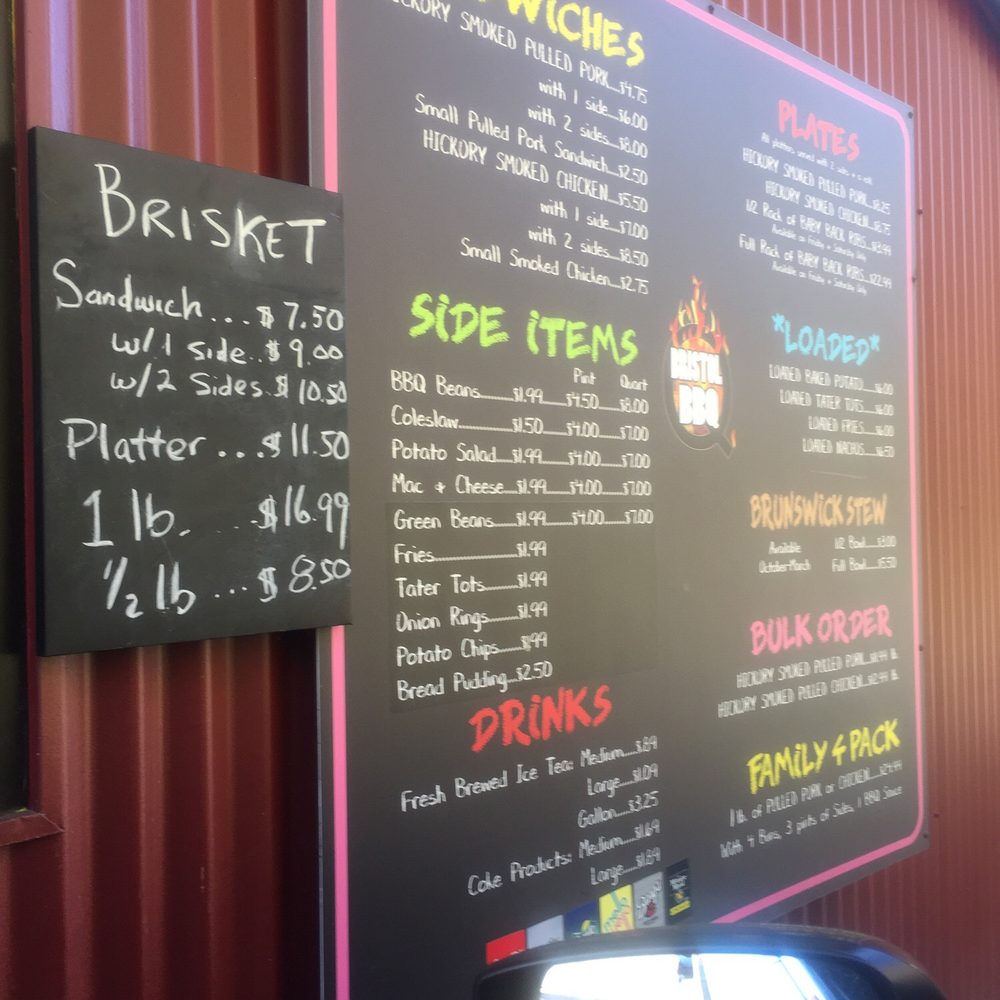 BRISKET
Sandwich... $ 7.50
w/1 side.. $ 9.00
w/2 Sides. $ 10.50
Platter ... $ 11.50
1 lb. .... $16.99
1/2 lb ... $ 8.50
HICKORY SMOKED PULLED PORK....$4.75
with 1 side....$6.00
with 2 sides....$8.00
Small Pulled Pork Sandwich....$2.50
HICKORY SMOKED CHICKEN....$5.50
with 1 side....$7.00
with 2 sides....$8.50
Small Smoked Chicken....$2.75
SIDE ITEMS
Pint Quart
BBQ Beans..........$1.99......$4.50......$8.00
Coleslaw..............$1.50......$4.00......$7.00
Potato Salad....$1.99......$4.00......$7.00
Mac + Cheese....$1.99......$4.00......$7.00
Green Beans.......$1.99......$4.00......$7.00
Fries......................$1.99
Tater Tots...........$1.99
Onion Rings.........$1.99
Potato Chips.......$.99
Bread Pudding....$2.50
DRINKS
Fresh Brewed Ice Tea: Medium....$.89
Large....$1.09
Gallon....$3.25
Coke Products: Medium....$1.69
Large....$1.89
BRISTOL
BBQ
PLATES
All platters served with 2 sides +
HICKORY SMOKED PULLED PORK....$8.25
HICKORY SMOKED CHICKEN....$8.75
1/2 Rack of BABY BACK RIBS....$13.99
Available on Friday + Saturday Only
Full Rack of BABY BACK RIBS....$22.99
Available on Friday + Saturday Only
*LOADED*
LOADED BAKED POTATO....$6.00
LOADED TATER TOTS....$6.00
LOADED FRIES....$6.00
LOADED NACHOS....$6.50
BRUNSWICK STEW
Available 1/2 Bowl....$3.00
October-March Full Bowl....$5.50
BULK ORDER
HICKORY SMOKED PULLED PORK lb.
HICKORY SMOKED PULLED CHICKEN....$12.99 lb.
FAMILY 4 PACK
1 lb. of PULLED PORK or CHICKEN....$24.99
With 4 Buns, 3 pints of Sides, 1 BBQ Sauce